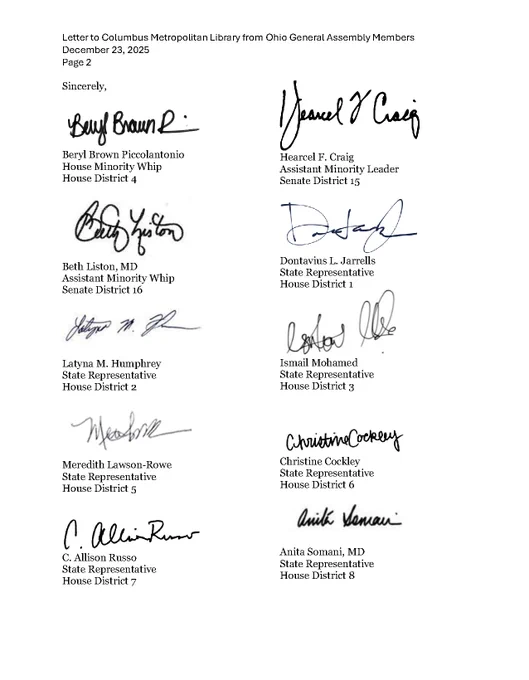 Letter to Columbus Metropolitan Library from Ohio General Assembly Members
December 23, 2025
Page 2
Sincerely,
Beryl Brown P.
Beryl Brown Piccolantonio
House Minority Whip
House District 4
Hearcel F Craig
Hearcel F. Craig
Assistant Minority Leader
Senate District 15
Beth Liston
Beth Liston, MD
Assistant Minority Whip
Senate District 16
Dontavius L. Jarrells
State Representative
House District 1
Latyna M.
Latyna M. Humphrey
State Representative
House District 2
Ismail Mohamed
State Representative
House District 3
Meredith Lawson-Rowe
State Representative
House District 5
Christine Cockley
Christine Cockley
State Representative
House District 6
C. Allison Russo
C. Allison Russo
State Representative
House District 7
Anita Somani
Anita Somani, MD
State Representative
House District 8